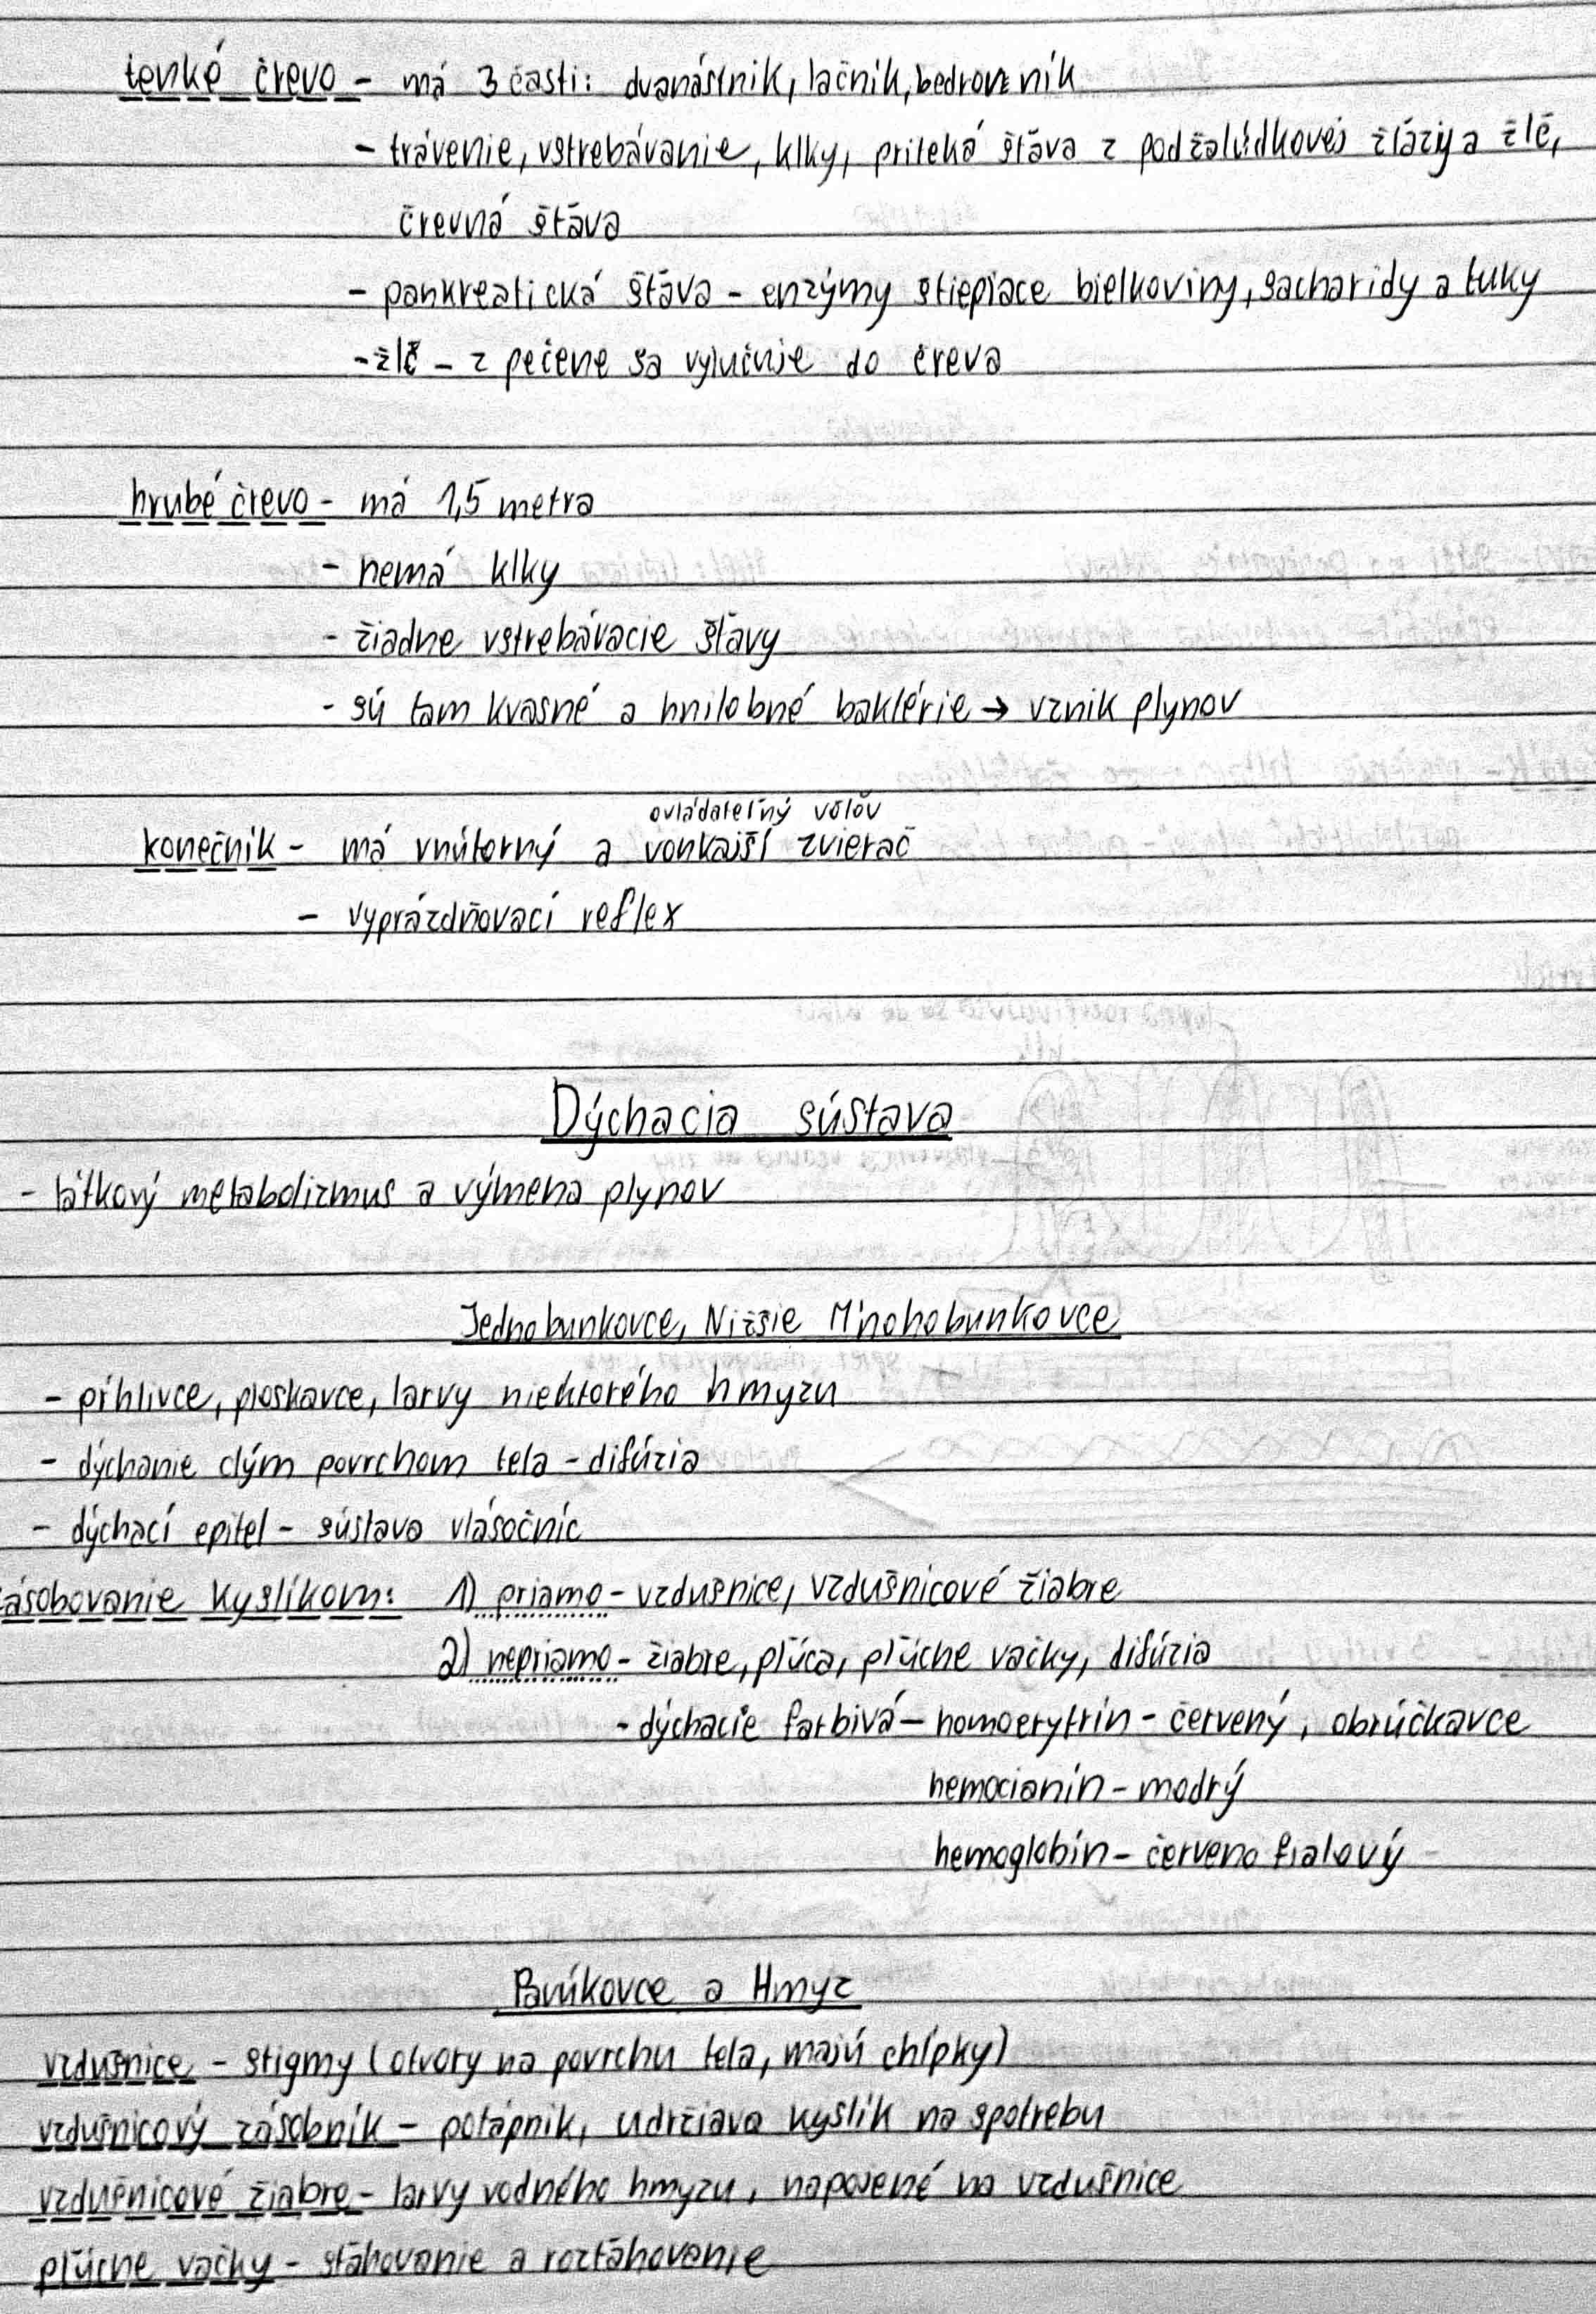 tenké črevo - má 3 časti: dvanástnik, lačnik, bedrovník
- trávenie, vstrebávanie, klky, priteká šťava z podžalúdkovej žlázy a žlč,
črevná šťava
- pankreatická šťava - enzýmy štiepiace bielkoviny, sacharidy a tuky
- žlč - z pečene sa vylučuje do čreva
hrubé črevo - má 1,5 metra
- nemá klky
- žiadne vstrebávacie šťavy
- sú tam kvasné a hnilobné baktérie → vznik plynov
ovládateľný vôľou
konečník - má vnútorný a vonkajší zvierač
- vyprázdňovací reflex
Dýchacia sústava
- látkový metabolizmus a výmena plynov
Jednobunkovce, Nižšie Mnohobunkovce
- pŕhlivce, ploskavce, larvy niektorého hmyzu
- dýchanie clým povrchom tela - difúzia
- dýchací epitel - sústava vlásočníc
zásobovanie kyslíkom: 1) priamo - vzdušnice, vzdušnicové žiabre
2) nepriamo - žiabre, pľúca, pľúcne vačky, difúzia
- dýchacie farbivá - homoerytrín - červený, obrúčkavce
hemocianín - modrý
hemoglobín - červeno fialový
Pavúkovce a Hmyz
vzdušnice - stigmy (otvory na povrchu tela, majú chĺpky)
vzdušnicový zásobník - potápnik, udržiava kyslík na spotrebu
vzdušnicové žiabre - larvy vodného hmyzu, napojené na vzdušnice
pľúcne vačky - sťahovanie a rozťahovanie